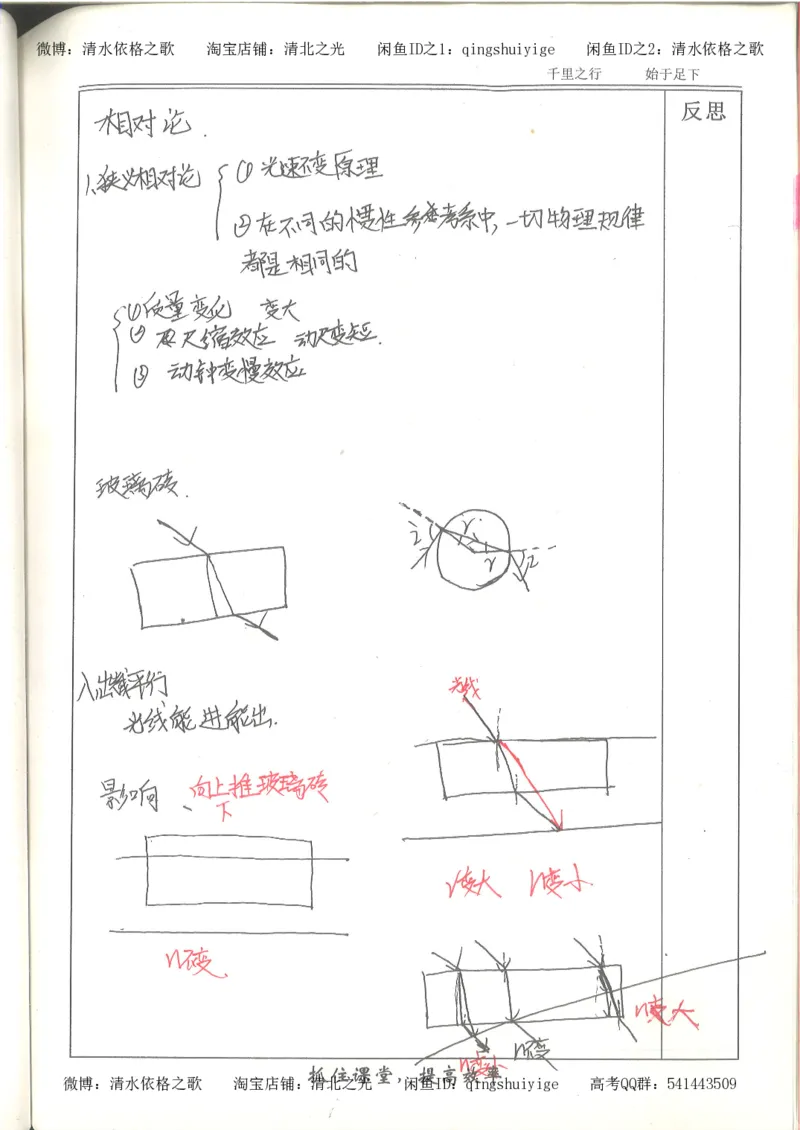 微博：清水依格之歌 淘宝店铺：清北之光 闲鱼ID之1：qingshuiyige 闲鱼ID之2：清水依格之歌
千里之行 始于足下
反思
相对论.
1、狭义相对论 ① 光速不变原理
② 在不同的惯性参考系中,一切物理规律
都是相同的
① 质量变化 变大
② 尺缩效应 动尺变短.
③ 动钟变慢效应
玻璃砖.
i r r i
入出线平行
光线能进能出.
光线
影响 、向上推玻璃砖
下
r变大 n变小
n不变
n变大
n不变
n变小
抓住课堂，提高效率
微博：清水依格之歌 淘宝店铺：清北之光 闲鱼ID之1：qingshuiyige 高考QQ群：541443509